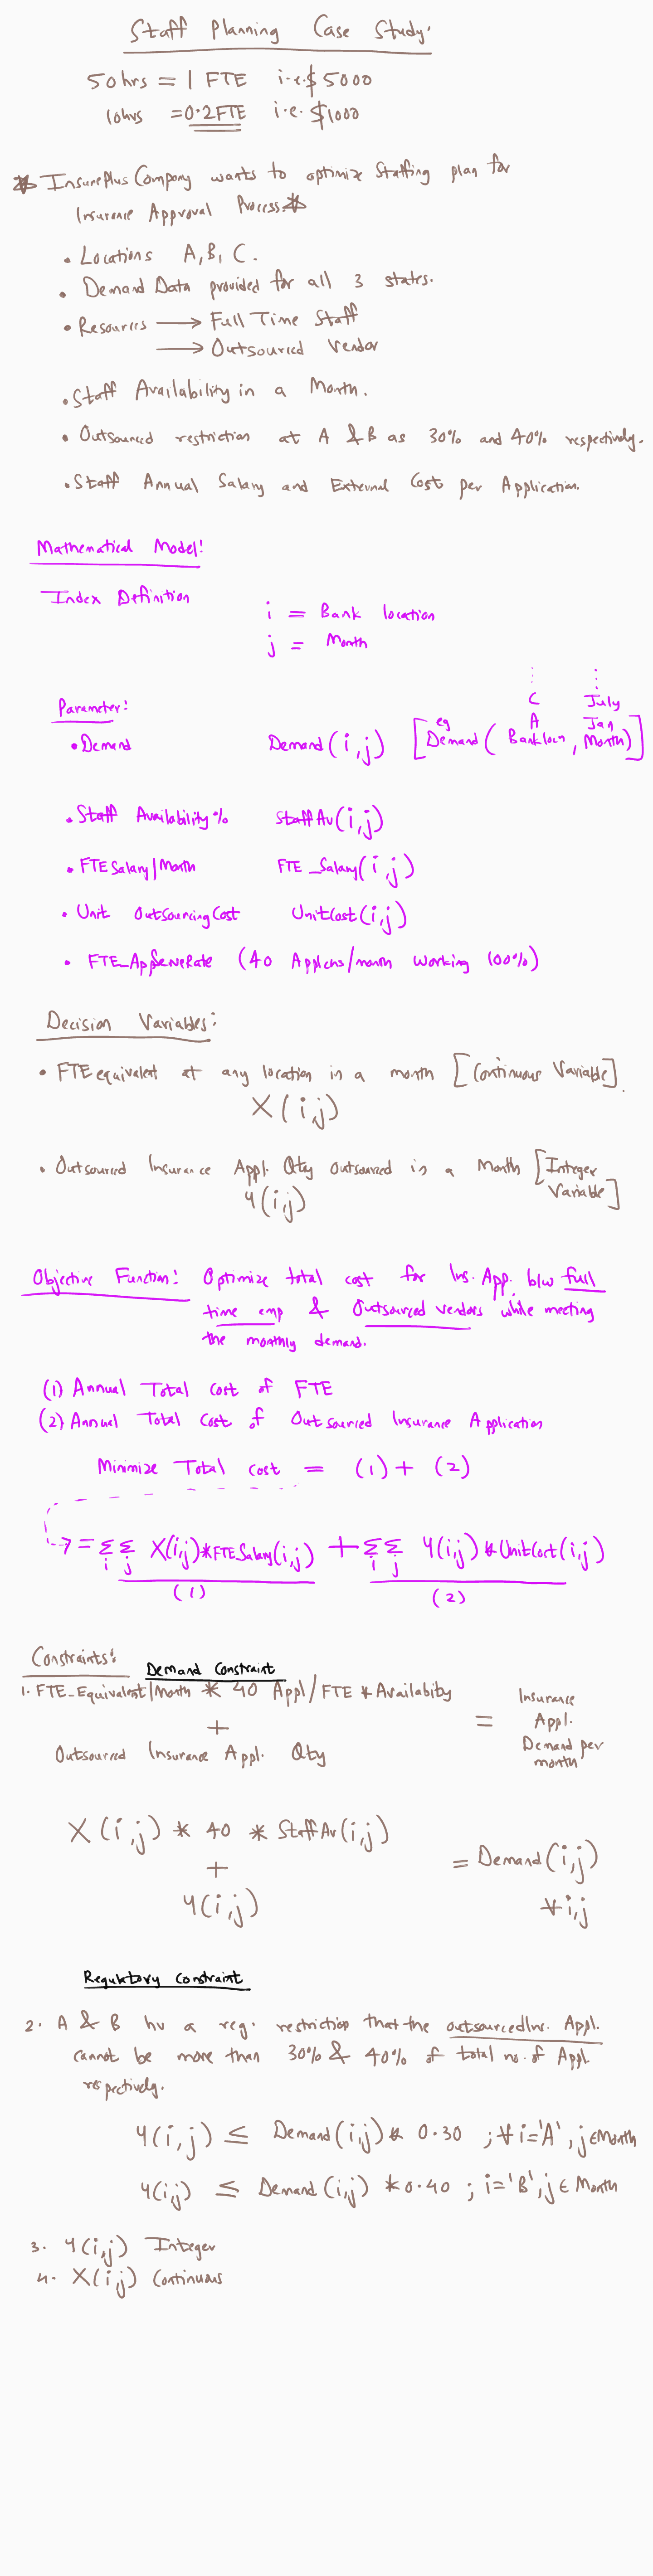 Staff Planning Case Study:
50hrs = 1 FTE i.e $ 5000
10hrs = 0.2 FTE i.e. $1000
* InsurePlus Company wants to optimize Staffing plan for
Insurance Approval Process *
• Locations A, B, C.
• Demand Data provided for all 3 states.
• Resources → Full Time Staff
→ Outsourced Vendor
• Staff Availability in a Month.
• Outsourced restriction at A & B as 30% and 40% respectively.
• Staff Annual Salary and External Cost per Application.
Mathematical Model:
Index Definition
i = Bank location
j = Month
Parameter:
C July
A Jan
• Demand Demand(i,j) [eg Demand( Bank locn, Month)]
• Staff Availability% StaffAv(i,j)
• FTE Salary/Month FTE_Salary(i,j)
• Unit Outsourcing Cost UnitCost(i,j)
• FTE_AppServeRate (40 Applcns/month Working 100%)
Decision Variables:
• FTE equivalent at any location in a month [Continuous Variable].
X(i,j)
• Outsourced Insurance Appl. Qty Outsourced in a Month [Integer
Variable]
Y(i,j)
Objective Function: Optimize total cost for Ins. App. b/w full
time emp & Outsourced vendors while meeting
the monthly demand.
(1) Annual Total Cost of FTE
(2) Annual Total Cost of Outsourced Insurance Application
Minimize Total Cost = (1) + (2)
→ = Σi Σj X(i,j)*FTESalary(i,j) + Σi Σj Y(i,j) * UnitCost(i,j)
(1) (2)
Constraints: Demand Constraint
1. FTE_Equivalent/Month * 40 Appl/FTE * Availability
+
Outsourced Insurance Appl. Qty
= Insurance
Appl.
Demand per
month
X(i,j) * 40 * StaffAv(i,j)
+
Y(i,j)
= Demand(i,j)
∀ i,j
Regulatory Constraint
2. A & B hv a reg. restriction that the outsourced Ins. Appl.
cannot be more than 30% & 40% of total no. of Appl
respectively.
Y(i,j) ≤ Demand(i,j) * 0.30 ; ∀ i='A', j ∈ Month
Y(i,j) ≤ Demand(i,j) * 0.40 ; i='B', j ∈ Month
3. Y(i,j) Integer
4. X(i,j) Continuous